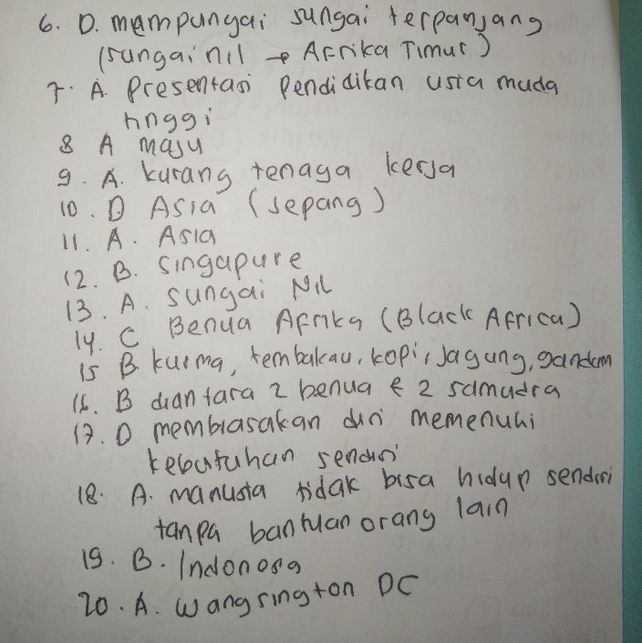 6. D. mempunyai sungai terpanjang
(sungai nil → Afrika Timur)
7. A. Presentasi Pendidikan usia muda
tinggi
8 A maju
9. A. kurang tenaga kerja
10. D Asia (Jepang)
11. A. Asia
12. B. Singapure
13. A. sungai Nil
14. C Benua Afrika (Black Africa)
15 B. kurma, tembakau, kopi, Jagung, gandum
16. B diantara 2 benua & 2 samudra
17. D membiasakan diri memenuhi
kebutuhan sendiri
18. A. manusia tidak bisa hidup sendiri
tanpa bantuan orang lain
19. B. Indonosa
20. A. Wangsington DC